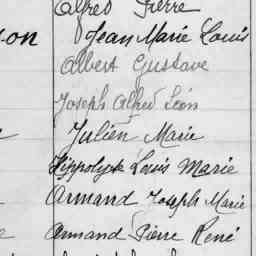 Alfred Pierre
son Jean Marie Louis
Albert Gustave
Joseph Alfred Léon
Julien Marie
Hippolyte Louis Marie
Armand Joseph Marie
e Armand Pierre René